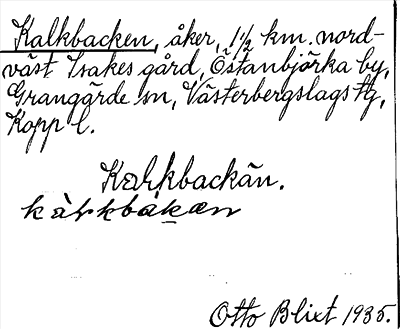 Kalkbacken, åker, 1½ km. nord-
väst Isakes gård, Östanbjörka by,
Grangärde sn, Västerbergslags tg,
Kopp l.
Kalkbackän.
kàɽkbákæn
Otto Blixt 1935.